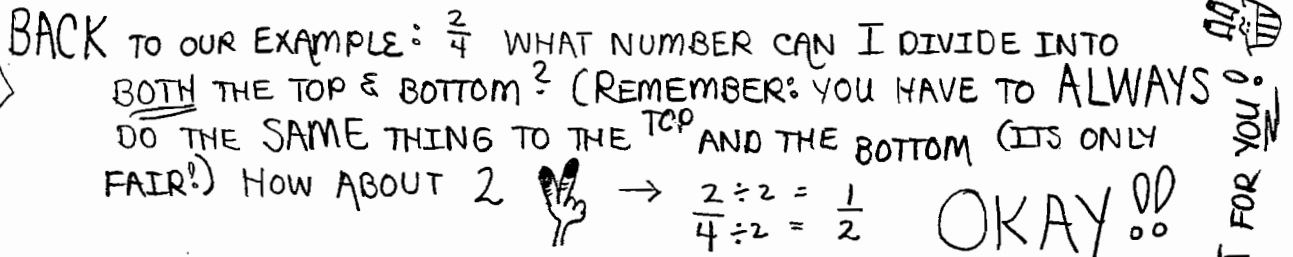 BACK TO OUR EXAMPLE: 2/4 WHAT NUMBER CAN I DIVIDE INTO
BOTH THE TOP & BOTTOM? (REMEMBER: YOU HAVE TO ALWAYS
DO THE SAME THING TO THE TOP AND THE BOTTOM (ITS ONLY
FAIR!) HOW ABOUT 2 → 2÷2 = 1
4÷2 = 2
OKAY!!
FOR YOU!